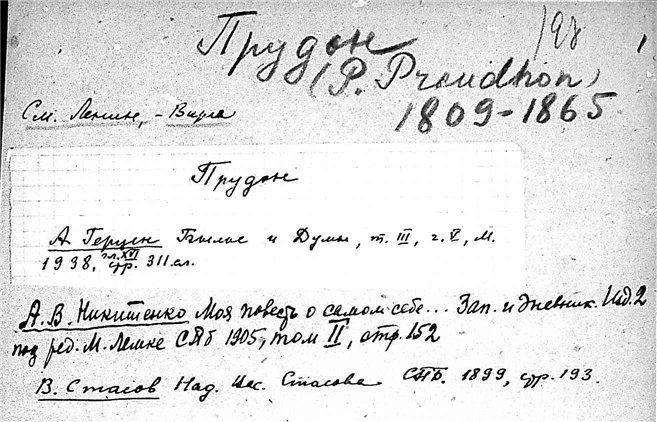 Прудон 198 1
(P. Proudhon)
1809-1865
См. Ленин, -
Прудон
А Герцен Былое и Думы, т. III, г. V, М.
гл. XVI
1938, стр. 311 сл.
А.В. Никитенко Моя повесть о самом себе... Зап. и дневник. Изд. 2
под ред. М. Лемке СПб 1905, том II, стр. 152
В. Стасов Над. Вас. Стасова СПБ. 1899, стр. 193.